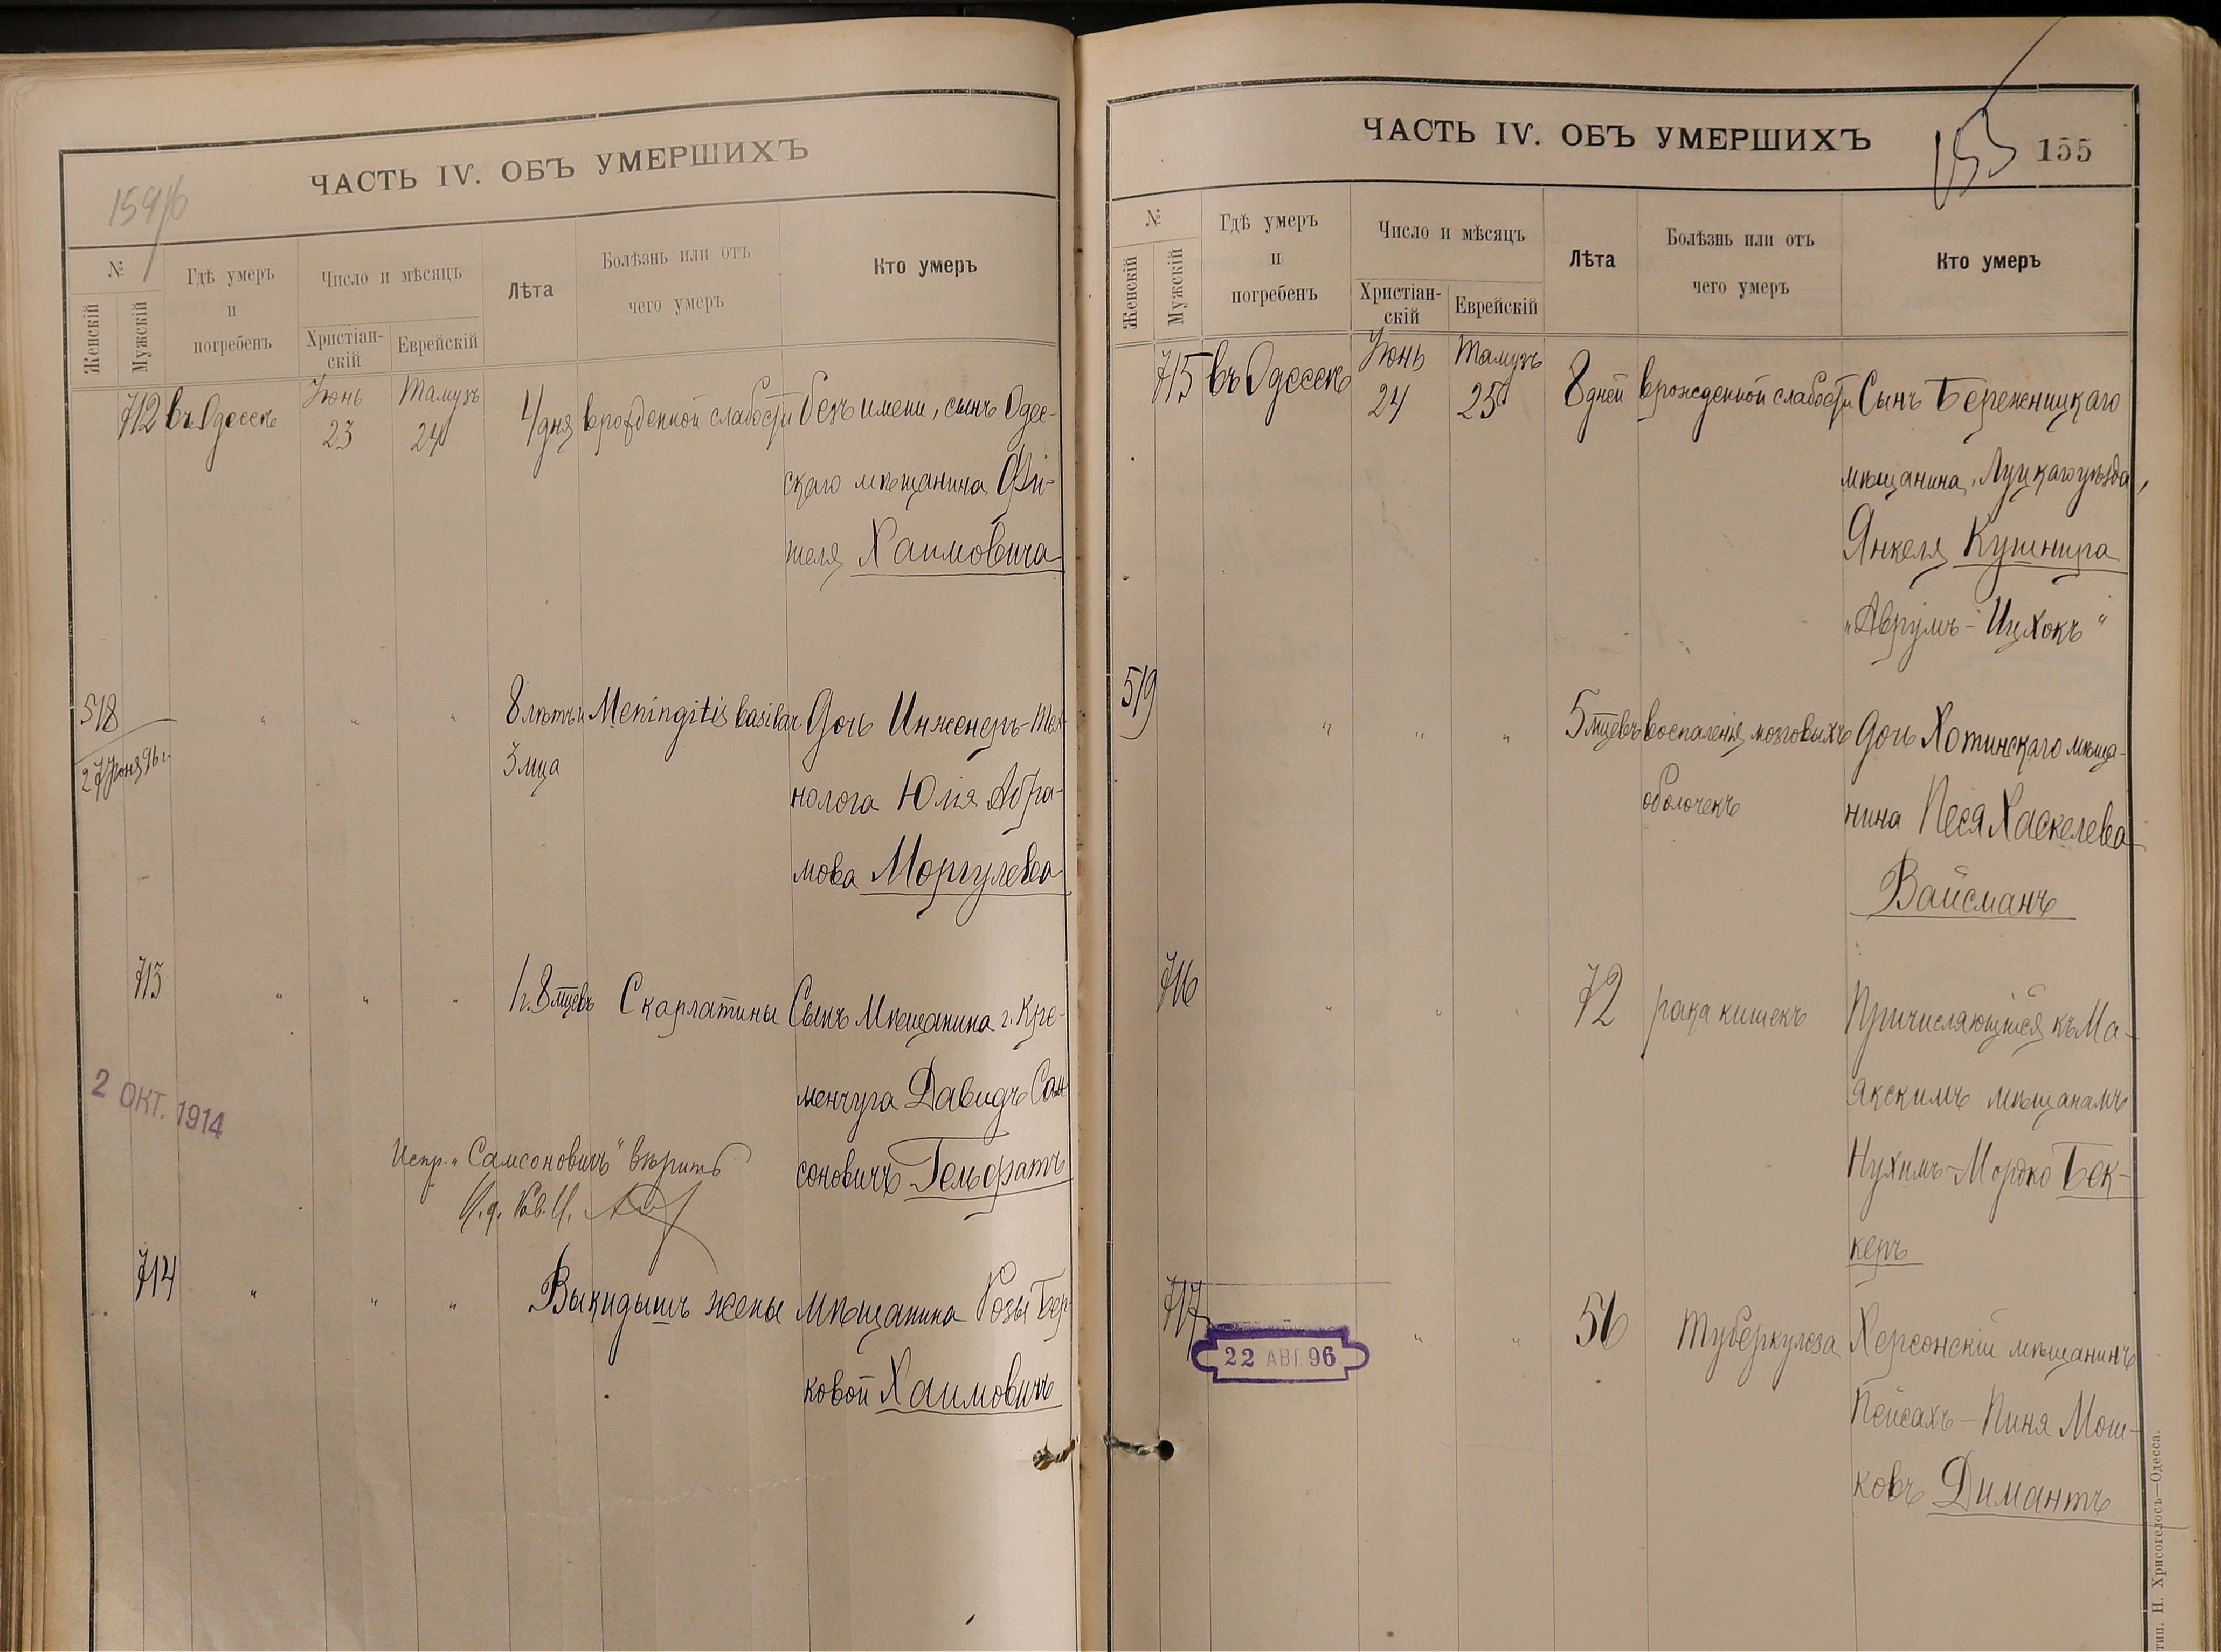 ЧАСТЬ IV. ОБЪ УМЕРШИХЪ
159/6
№
Женскій
Мужскій
Гдѣ умеръ
и
погребенъ
Число и мѣсяцъ
Христіан-
скій
Еврейскій
Лѣта
Болѣзнь или отъ
чего умеръ
Кто умеръ
712 въ Одессѣ Іюнь 23 Тамузъ 24 4 дня врожденной слабости безъ имени, сынъ Одес-
скаго мѣщанина Фи-
шеля Хаимовича
518 " " " 8 лѣтъ и Meningitis basilar Дочь Инженеръ-Тех-
27 Іюня 96 г. 3 мца нолога Юлія Абра-
мова Моргулева
713 " " " 1 г. 8 мцевъ Скарлатины Сынъ Мѣщанина г. Кре-
менчуга Давидъ Сам-
2 ОКТ. 1914
Испр. "Самсоновичъ" вѣрить соновичъ Гельфатъ
И. д.
714 " " " Выкидышъ жены мѣщанина Розы Бер-
ковой Хаимовичъ
ЧАСТЬ IV. ОБЪ УМЕРШИХЪ
153 155
№
Женскій
Мужскій
Гдѣ умеръ
и
погребенъ
Число и мѣсяцъ
Христіан-
скій
Еврейскій
Лѣта
Болѣзнь или отъ
чего умеръ
Кто умеръ
715 въ Одессѣ Іюнь 24 Тамузъ 25 8 дней врожденной слабости Сынъ Бережницкаго
мѣщанина, Луцкаго уѣзда,
Янкеля Кушнира
"Аврумъ-Ицхокъ"
519 " " " 5 мцевъ воспаленія мозговыхъ Дочь Хотинскаго мѣща-
оболочекъ нина Песя Хаскелева
Вайсманъ
716 " " " 72 рака кишекъ Причисляющійся къ Ма-
якскимъ мѣщанамъ
Нухимъ-Мордко Бек-
керъ
717 " " 56 туберкулеза Херсонскій мѣщанинъ
22 АВГ. 96
Пейсахъ-Пиня Мош-
ковъ Димантъ
тип. Н. Хрисогелосъ—Одесса.